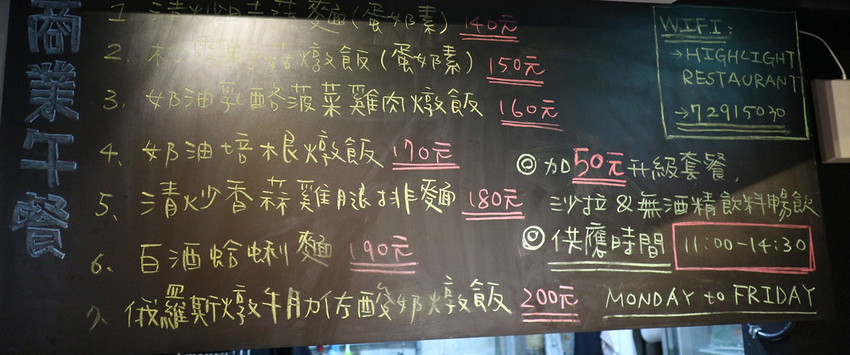 商業午餐
1. 清炒 菠菜麵(蛋奶素) 140元
2. 松 燉飯(蛋奶素) 150元
3. 奶油乳酪菠菜雞肉燉飯 160元
4. 奶油培根燉飯 170元
5. 清炒香蒜雞腿排麵 180元
6. 百酒蛤蜊麵 190元
7. 俄羅斯燉牛肋佐酸奶燉飯 200元
WIFI:
→HIGHLIGHT
RESTAURANT
→72915030
◎加50元升級套餐,
沙拉&無酒精飲料暢飲
◎供應時間 11:00-14:30
MONDAY to FRIDAY